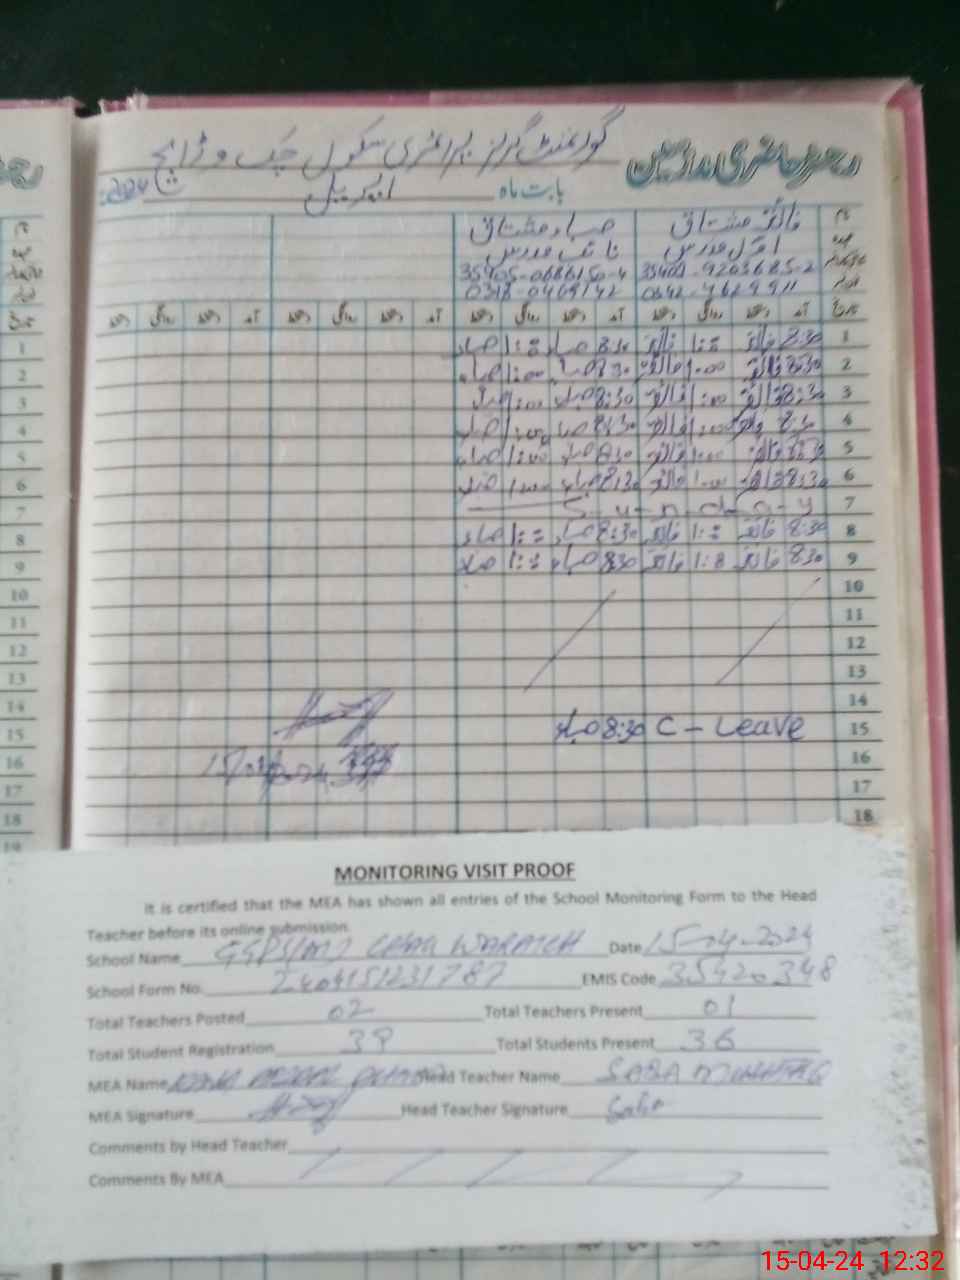 گورنمنٹ گرلز پرائمری سکول چک وڑائچ
رجسٹر حاضری مدرسین
بابت ماہ اپریل 2024
نام فائقہ مشتاق صباء مشتاق
عہدہ اول مدرس نائب مدرس
35401-9203685-2 35405-0686150-4
0342-4629911 0318-0469142
تاریخ آمد دستخط روانگی دستخط آمد دستخط روانگی دستخط آمد دستخط روانگی دستخط آمد دستخط روانگی دستخط
1 8:30 فائقہ 1:00 فائقہ 8:30 صباء 1:00 صباء
2 8:30 فائقہ 1:00 فائقہ 8:30 صباء 1:00 صباء
3 8:30 فائقہ 1:00 فائقہ 8:30 صباء 1:00 صباء
4 8:30 فائقہ 1:00 فائقہ 8:30 صباء 1:00 صباء
5 8:30 فائقہ 1:00 فائقہ 8:30 صباء 1:00 صباء
6 8:30 فائقہ 1:00 فائقہ 8:30 صباء 1:00 صباء
7 S-u-n-d-a-y
8 8:30 فائقہ 1:00 فائقہ 8:30 صباء 1:00 صباء
9 8:30 فائقہ 1:00 فائقہ 8:30 صباء 1:00 صباء
10
11
12
13
14
15 C - Leave 8:30 صباء
16
17
18
MONITORING VISIT PROOF
It is certified that the MEA has shown all entries of the School Monitoring Form to the Head
Teacher before its online submission.
School Name GGPS CHAK WARAICH Date 15-04-2024
School Form No. 2404151231787 EMIS Code 35420348
Total Teachers Posted 02 Total Teachers Present 01
Total Student Registration 38 Total Students Present 36
MEA Name Head Teacher Name SABA MUSHTAQ
MEA Signature Head Teacher Signature Saba
Comments by Head Teacher
Comments By MEA
15-04-24 12:32